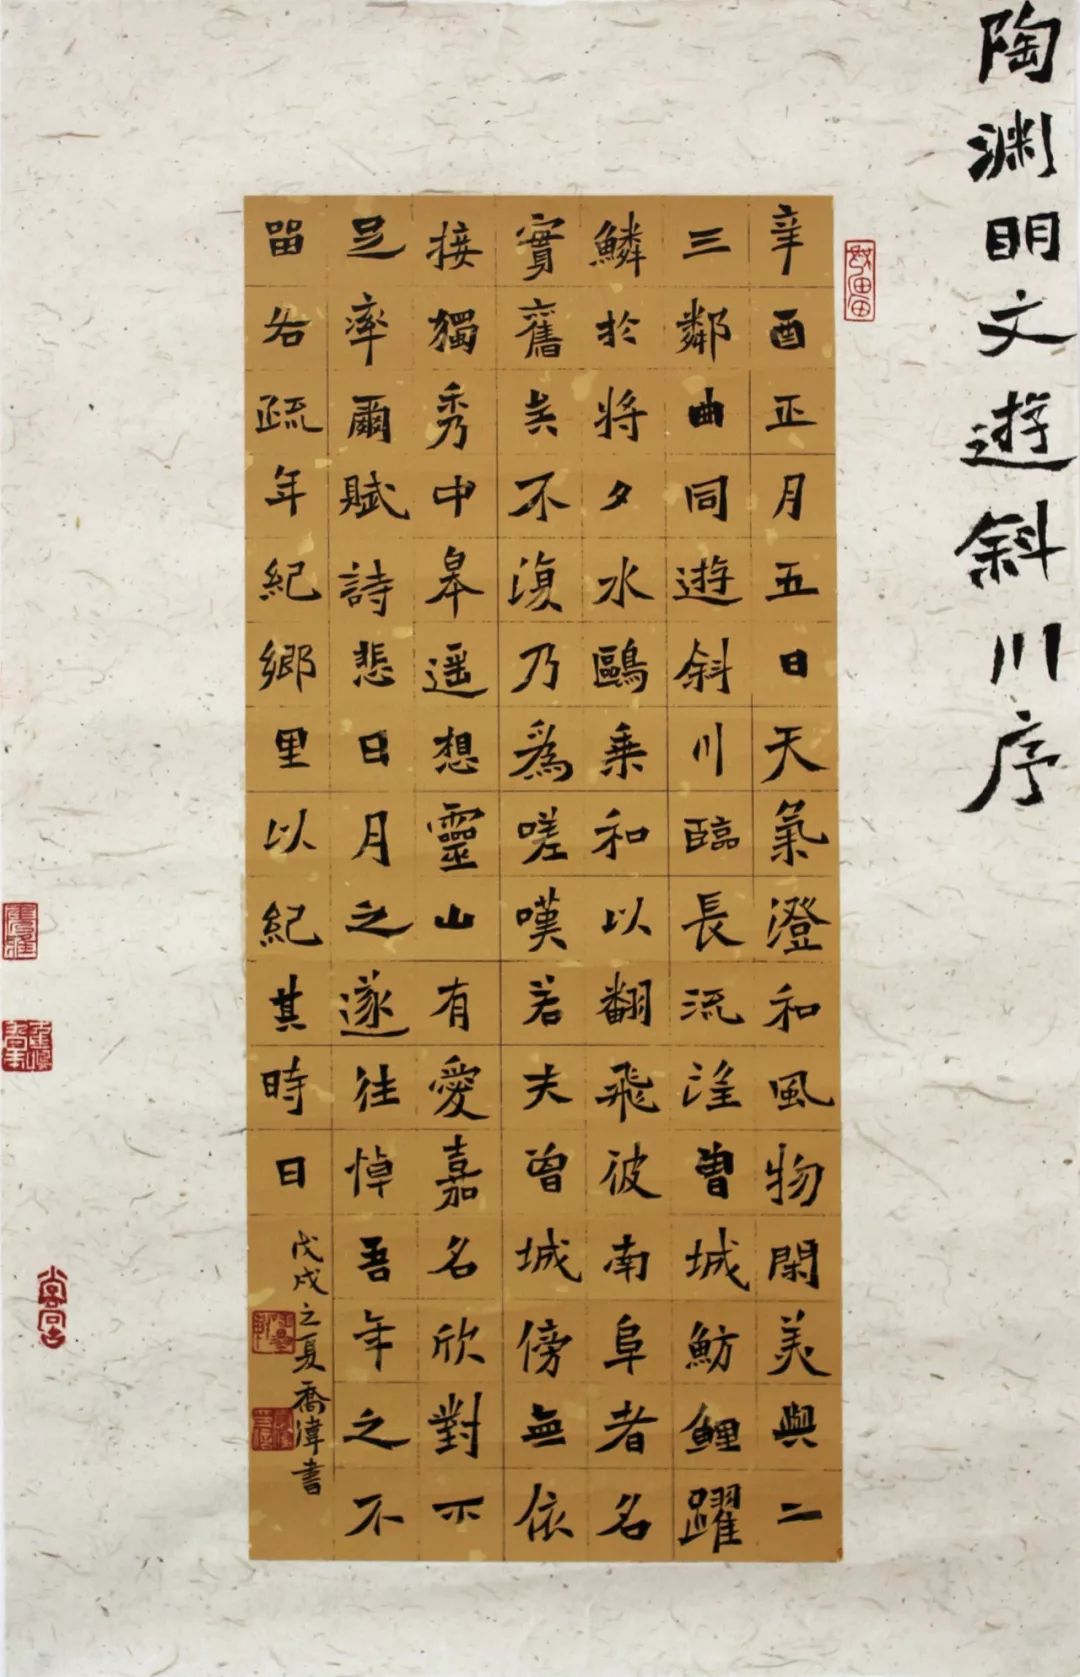 陶渊明文遊斜川序
辛酉正月五日天氣澄和風物閑美與二
三鄰曲同遊斜川臨長流望曾城魴鯉躍
鱗於将夕水鷗乘和以翻飛彼南阜者名
實舊矣不復乃為嗟嘆若夫曾城傍無依
接獨秀中皋遥想靈山有愛嘉名欣對不
足率爾賦詩悲日月之遂往悼吾年之不
留各疏年紀鄉里以紀其時日
戊戌之夏喬漳書